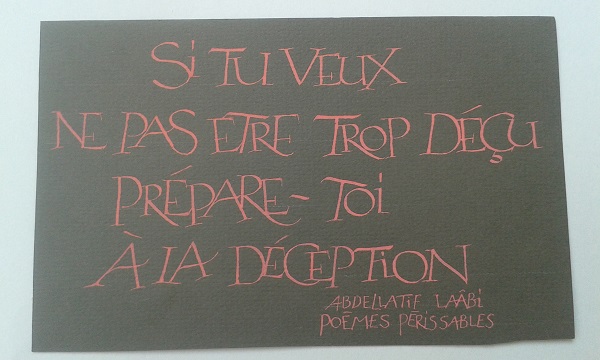 Si TU VEUX
NE PAS ÊTRE TROP DÉÇU
PRÉPARE-TOi
À LA DÉCEPTiON
ABDELLATIF LAÂBi
POÈMES PÉRISSABLES